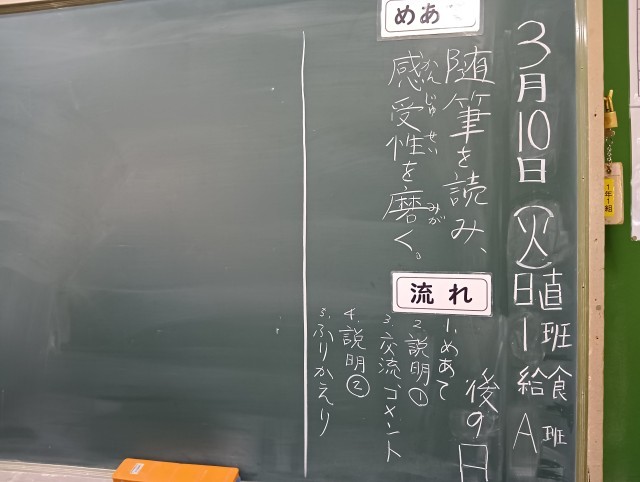 3月10日(火)
日直 1班
給食 A班
後9日
めあて
随筆を読み、
感受性を磨く。
かんじゅせい
みが
流れ
1.めあて
2.説明①
3.交流、コメント
4.説明②
5.ふりかえり
1年1組